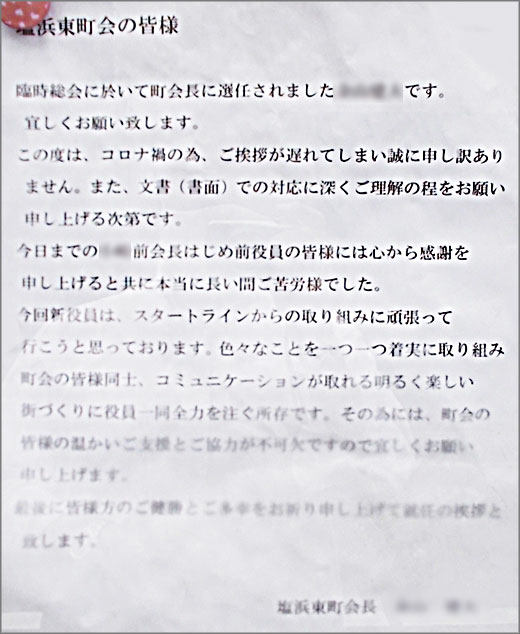 塩浜東町会の皆様
臨時総会に於いて町会長に選任されました です。
宜しくお願い致します。
この度は、コロナ禍の為、ご挨拶が遅れてしまい誠に申し訳あり
ません。また、文書（書面）での対応に深くご理解の程をお願い
申し上げる次第です。
今日までの 前会長はじめ前役員の皆様には心から感謝を
申し上げると共に本当に長い間ご苦労様でした。
今回新役員は、スタートラインからの取り組みに頑張って
行こうと思っております。色々なことを一つ一つ着実に取り組み
町会の皆様同士、コミュニケーションが取れる明るく楽しい
街づくりに役員一同全力を注ぐ所存です。その為には、町会の
皆様の温かいご支援とご協力が不可欠ですので宜しくお願い
申し上げます。
最後に皆様方のご健勝とご多幸をお祈り申し上げて就任の挨拶と
致します。
塩浜東町会長